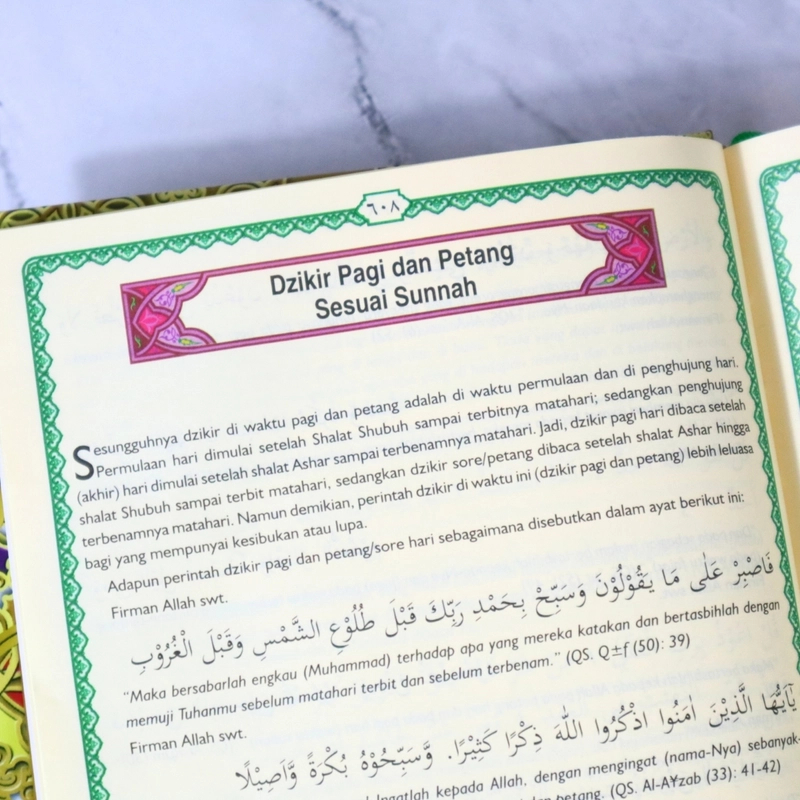 ٦٠٨
Dzikir Pagi dan Petang
Sesuai Sunnah
Sesungguhnya dzikir di waktu pagi dan petang adalah di waktu permulaan dan di penghujung hari.
Permulaan hari dimulai setelah Shalat Shubuh sampai terbitnya matahari; sedangkan penghujung
(akhir) hari dimulai setelah shalat Ashar sampai terbenamnya matahari. Jadi, dzikir pagi hari dibaca setelah
shalat Shubuh sampai terbit matahari, sedangkan dzikir sore/petang dibaca setelah shalat Ashar hingga
terbenamnya matahari. Namun demikian, perintah dzikir di waktu ini (dzikir pagi dan petang) lebih leluasa
bagi yang mempunyai kesibukan atau lupa.
Adapun perintah dzikir pagi dan petang/sore hari sebagaimana disebutkan dalam ayat berikut ini:
Firman Allah swt.
فَاصْبِرْ عَلٰى مَا يَقُوْلُوْنَ وَسَبِّحْ بِحَمْدِ رَبِّكَ قَبْلَ طُلُوْعِ الشَّمْسِ وَقَبْلَ الْغُرُوْبِ
"Maka bersabarlah engkau (Muhammad) terhadap apa yang mereka katakan dan bertasbihlah dengan
memuji Tuhanmu sebelum matahari terbit dan sebelum terbenam." (QS. Q±f (50): 39)
Firman Allah swt.
يٰٓاَيُّهَا الَّذِيْنَ اٰمَنُوا اذْكُرُوا اللّٰهَ ذِكْرًا كَثِيْرًا. وَّسَبِّحُوْهُ بُكْرَةً وَّاَصِيْلًا
kepada Allah, dengan mengingat (nama-Nya) sebanyak-
petang. (QS. Al-A¥zab (33): 41-42)